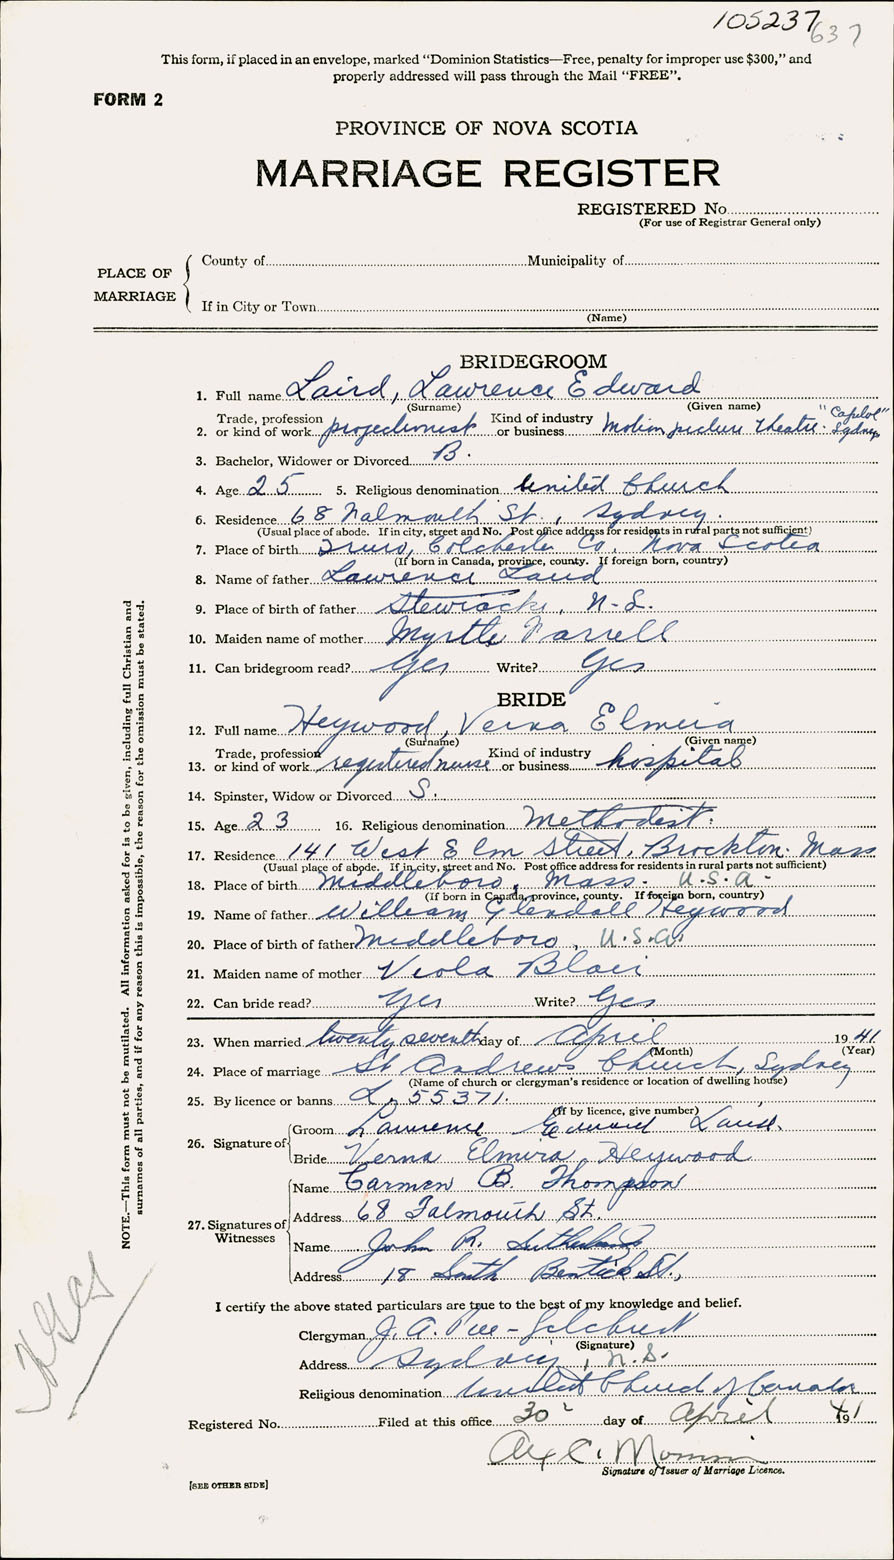 105237
637
This form, if placed in an envelope, marked “Dominion Statistics—Free, penalty for improper use $300,” and
properly addressed will pass through the Mail “FREE”.
FORM 2
PROVINCE OF NOVA SCOTIA
MARRIAGE REGISTER
REGISTERED No.
(For use of Registrar General only)
PLACE OF MARRIAGE
County of Municipality of
If in City or Town
(Name)
BRIDEGROOM
1. Full name Laird, Lawrence Edward
(Surname) (Given name)
2. Trade, profession or kind of work projectionist Kind of industry or business Motion picture theatre. "Capitol" Sydney
3. Bachelor, Widower or Divorced B.
4. Age 25 5. Religious denomination United Church
6. Residence 68 Falmouth St., Sydney.
(Usual place of abode. If in city, street and No. Post office address for residents in rural parts not sufficient)
7. Place of birth Truro, Colchester Co, Nova Scotia
(If born in Canada, province, county. If foreign born, country)
8. Name of father Lawrence Laird
9. Place of birth of father Stewiacke, N.S.
10. Maiden name of mother Myrtle Farrell
11. Can bridegroom read? Yes Write? Yes
BRIDE
12. Full name Heywood, Verna Elmira
(Surname) (Given name)
13. Trade, profession or kind of work registered nurse Kind of industry or business hospital
14. Spinster, Widow or Divorced S.
15. Age 23 16. Religious denomination Methodist.
17. Residence 141 West Elm Street, Brockton. Mass
(Usual place of abode. If in city, street and No. Post office address for residents in rural parts not sufficient)
18. Place of birth Middleboro, Mass. U.S.A.
(If born in Canada, province, county. If foreign born, country)
19. Name of father William Glendall Heywood
20. Place of birth of father Middleboro, U.S.A.
21. Maiden name of mother Viola Blair
22. Can bride read? Yes Write? Yes
23. When married twenty seventh day of April 1941
(Month) (Year)
24. Place of marriage St Andrews Church, Sydney
(Name of church or clergyman's residence or location of dwelling house)
25. By licence or banns L. 55371.
(If by licence, give number)
26. Signature of
Groom Lawrence Edward Laird.
Bride Verna Elmira Heywood
27. Signatures of Witnesses
Name Carmen B. Thompson
Address 68 Falmouth St.
Name John R. Sutherland
Address 18 South Bentick St.,
I certify the above stated particulars are true to the best of my knowledge and belief.
Clergyman J. A.
(Signature)
Address Sydney, N.S.
Religious denomination United Church of Canada
Registered No. Filed at this office 30 day of April 1941
Alex C.
Signature of Issuer of Marriage Licence.
[SEE OTHER SIDE]
NOTE.—This form must not be mutilated. All information asked for is to be given, including full Christian and
surnames of all parties, and if for any reason this is impossible, the reason for the omission must be stated.